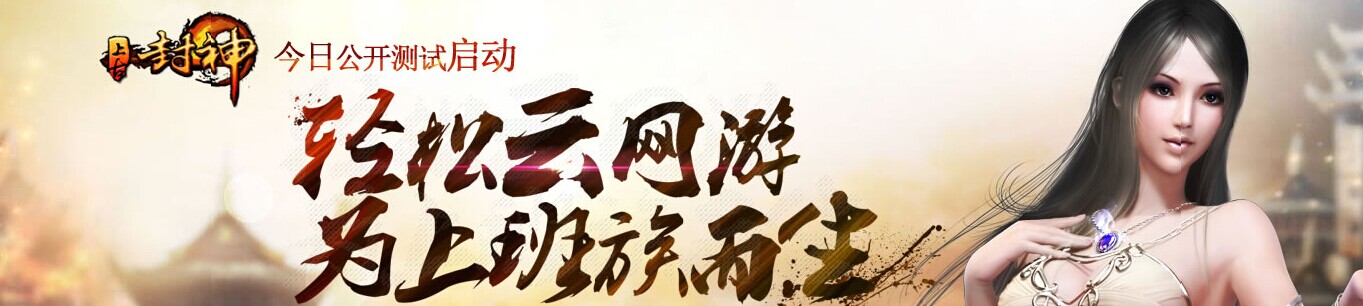 上古封神
今日公开测试启动
轻松云网游
为上班族而生